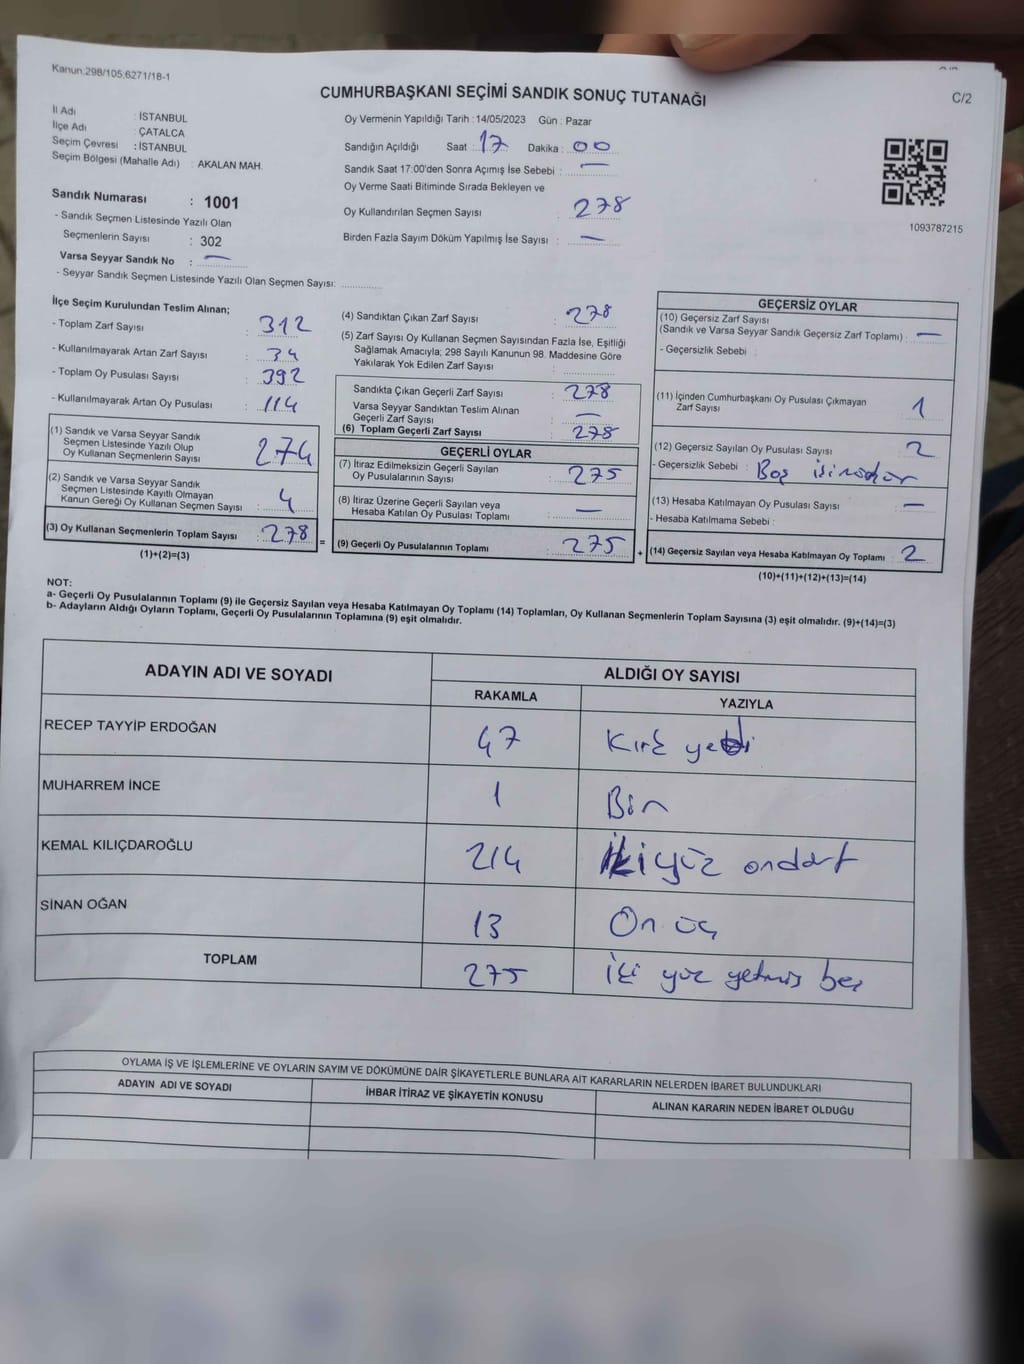 Kanun.298/105,6271/18-1
C/2
CUMHURBAŞKANI SEÇİMİ SANDIK SONUÇ TUTANAĞI
İl Adı : İSTANBUL
İlçe Adı : ÇATALCA
Seçim Çevresi : İSTANBUL
Seçim Bölgesi (Mahalle Adı) : AKALAN MAH.
Oy Vermenin Yapıldığı Tarih :14/05/2023 Gün : Pazar
Sandığın Açıldığı Saat : 17 Dakika : 00
Sandık Saat 17:00'den Sonra Açımış İse Sebebi : —
Oy Verme Saati Bitiminde Sırada Bekleyen ve
Oy Kullandırılan Seçmen Sayısı 278
Birden Fazla Sayım Döküm Yapılmış İse Sayısı : —
1093787215
Sandık Numarası : 1001
- Sandık Seçmen Listesinde Yazılı Olan
Seçmenlerin Sayısı : 302
Varsa Seyyar Sandık No : —
- Seyyar Sandık Seçmen Listesinde Yazılı Olan Seçmen Sayısı:
İlçe Seçim Kurulundan Teslim Alınan;
- Toplam Zarf Sayısı : 312
- Kullanılmayarak Artan Zarf Sayısı : 34
- Toplam Oy Pusulası Sayısı : 392
- Kullanılmayarak Artan Oy Pusulası : 114
(1) Sandık ve Varsa Seyyar Sandık
Seçmen Listesinde Yazılı Olup
Oy Kullanan Seçmenlerin Sayısı : 274
(2) Sandık ve Varsa Seyyar Sandık
Seçmen Listesinde Kayıtlı Olmayan
Kanun Gereği Oy Kullanan Seçmen Sayısı : 4
(3) Oy Kullanan Seçmenlerin Toplam Sayısı : 278
(1)+(2)=(3)
(4) Sandıktan Çıkan Zarf Sayısı : 278
(5) Zarf Sayısı Oy Kullanan Seçmen Sayısından Fazla İse, Eşitliği
Sağlamak Amacıyla; 298 Sayılı Kanunun 98. Maddesine Göre
Yakılarak Yok Edilen Zarf Sayısı :
Sandıkta Çıkan Geçerli Zarf Sayısı : 278
Varsa Seyyar Sandıktan Teslim Alınan
Geçerli Zarf Sayısı : —
(6) Toplam Geçerli Zarf Sayısı : 278
GEÇERLİ OYLAR
(7) İtiraz Edilmeksizin Geçerli Sayılan
Oy Pusulalarının Sayısı : 275
(8) İtiraz Üzerine Geçerli Sayılan veya
Hesaba Katılan Oy Pusulası Toplamı : —
= (9) Geçerli Oy Pusulalarının Toplamı : 275
GEÇERSİZ OYLAR
(10) Geçersiz Zarf Sayısı
(Sandık ve Varsa Seyyar Sandık Geçersiz Zarf Toplamı) : —
- Geçersizlik Sebebi :
(11) İçinden Cumhurbaşkanı Oy Pusulası Çıkmayan
Zarf Sayısı : 1
(12) Geçersiz Sayılan Oy Pusulası Sayısı : 2
- Geçersizlik Sebebi : Boş
(13) Hesaba Katılmayan Oy Pusulası Sayısı : —
- Hesaba Katılmama Sebebi :
+ (14) Geçersiz Sayılan veya Hesaba Katılmayan Oy Toplamı : 2
(10)+(11)+(12)+(13)=(14)
NOT:
a- Geçerli Oy Pusulalarının Toplamı (9) ile Geçersiz Sayılan veya Hesaba Katılmayan Oy Toplamı (14) Toplamları, Oy Kullanan Seçmenlerin Toplam Sayısına (3) eşit olmalıdır. (9)+(14)=(3)
b- Adayların Aldığı Oyların Toplamı, Geçerli Oy Pusulalarının Toplamına (9) eşit olmalıdır.
ADAYIN ADI VE SOYADI ALDIĞI OY SAYISI
RAKAMLA YAZIYLA
RECEP TAYYİP ERDOĞAN 47 Kırk yedi
MUHARREM İNCE 1 Bir
KEMAL KILIÇDAROĞLU 214 İkiyüz ondört
SİNAN OĞAN 13 On üç
TOPLAM 275 İki yüz yetmiş beş
OYLAMA İŞ VE İŞLEMLERİNE VE OYLARIN SAYIM VE DÖKÜMÜNE DAİR ŞİKAYETLERLE BUNLARA AİT KARARLARIN NELERDEN İBARET BULUNDUKLARI
ADAYIN ADI VE SOYADI İHBAR İTİRAZ VE ŞİKAYETİN KONUSU ALINAN KARARIN NEDEN İBARET OLDUĞU